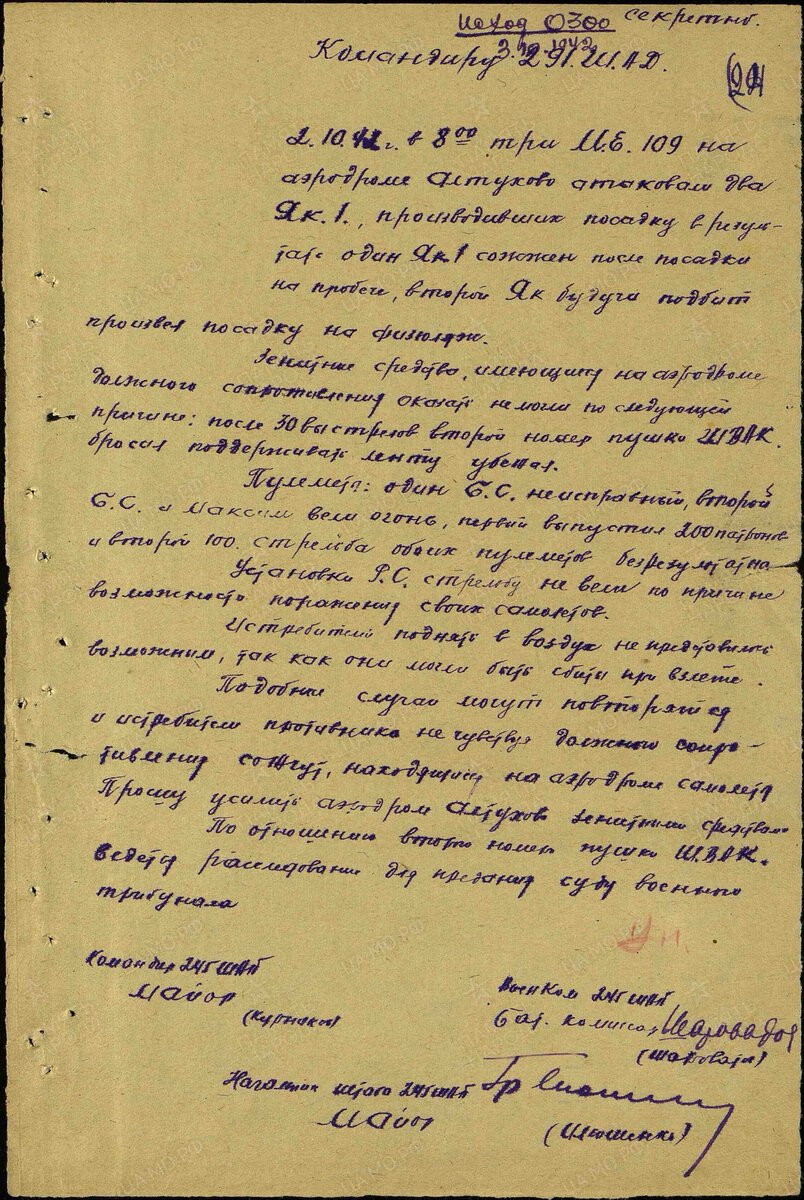 исход 0300 секретно.
3.10.1942
Командиру 291 Ш.А.Д.
2.10.42 г. в 8 00 три М.Е. 109 на
аэродроме Алтухово атаковали два
Як.1., производивших посадку в резуль-
тате один Як.1 сожжен после посадки
на пробеге, второй Як будучи подбит
произвел посадку на фюзеляж.
Зенитные средства, имеющиеся на аэродроме
должного сопротивления оказать не могли по следующей
причине: после 30 выстрелов второй номер пушки ШВАК
бросил поддерживать ленту убежал.
Пулемета: один Б.С. неисправный, второй
Б.С. и Максим вели огонь, первый выпустил 200 патронов
и второй 100. стрельба обоих пулеметов безрезультатна
Установки Р.С. стрельбу не вели по причине
возможности поражения своих самолетов.
Истребителей поднять в воздух не представилось
возможным, так как они могли быть сбиты при взлете.
Подобные случаи могут повториться
и истребители противника не чувствуя должного сопро-
тивления сожгут, находящиеся на аэродроме самолеты
Прошу усилить аэродром Алтухово зенитными средствами
По отношению второго номера пушки Ш.ВАК.
ведется расследование для предания суду военного
трибунала
Командир 245 ШАП
Майор
Военком 245 ШАП
Бат. комиссар
Начальник штаба 245 ШАП
Майор
(Илюшенко)
ЦАМО.РФ